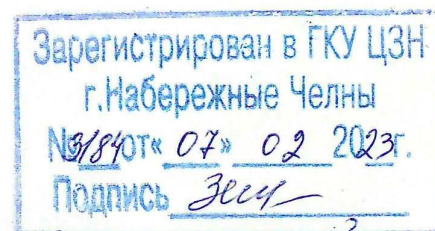 Зарегистрирован в ГКУ ЦЗН
г.Набережные Челны
№3/84от« 07» 02 2023г.
Подпись